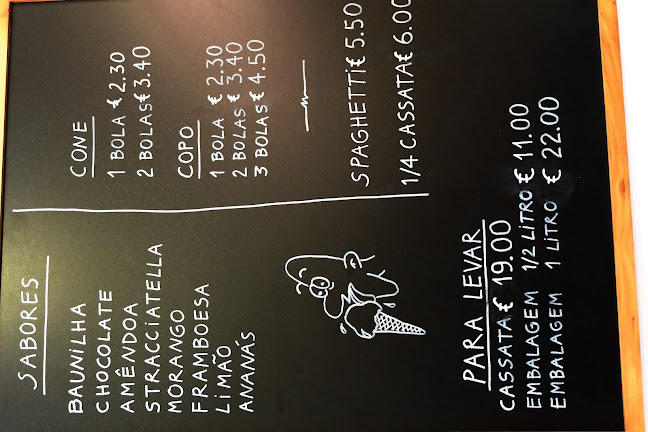 SABORES
BAUNILHA
CHOCOLATE
AMÊNDOA
STRACCIATELLA
MORANGO
FRAMBOESA
LIMÃO
ANANÁS
CONE
1 BOLA € 2.30
2 BOLAS € 3.40
COPO
1 BOLA € 2.30
2 BOLAS € 3.40
3 BOLAS € 4.50
SPAGHETTI € 5.50
1/4 CASSATA € 6.00
PARA LEVAR
CASSATA € 19.00
EMBALAGEM 1/2 LITRO € 11.00
EMBALAGEM 1 LITRO € 22.00